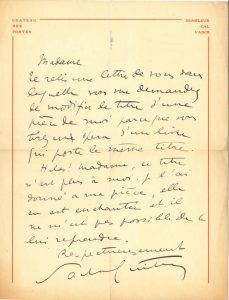 CHATEAU
DES
PORTES
HONFLEUR
CALVADOS
Madame
Je reçois une lettre de vous dans
laquelle vous me demandez
de modifier le titre d'une
pièce de moi parce que vous
d'un livre
qui porte le même titre.
Hélas! Madame, ce titre
n'est plus à moi. je l'ai
donné à ma pièce, elle
en est enchantée et il
ne m'est pas possible de le
lui reprendre.
Respectueusement
Sacha Guitry